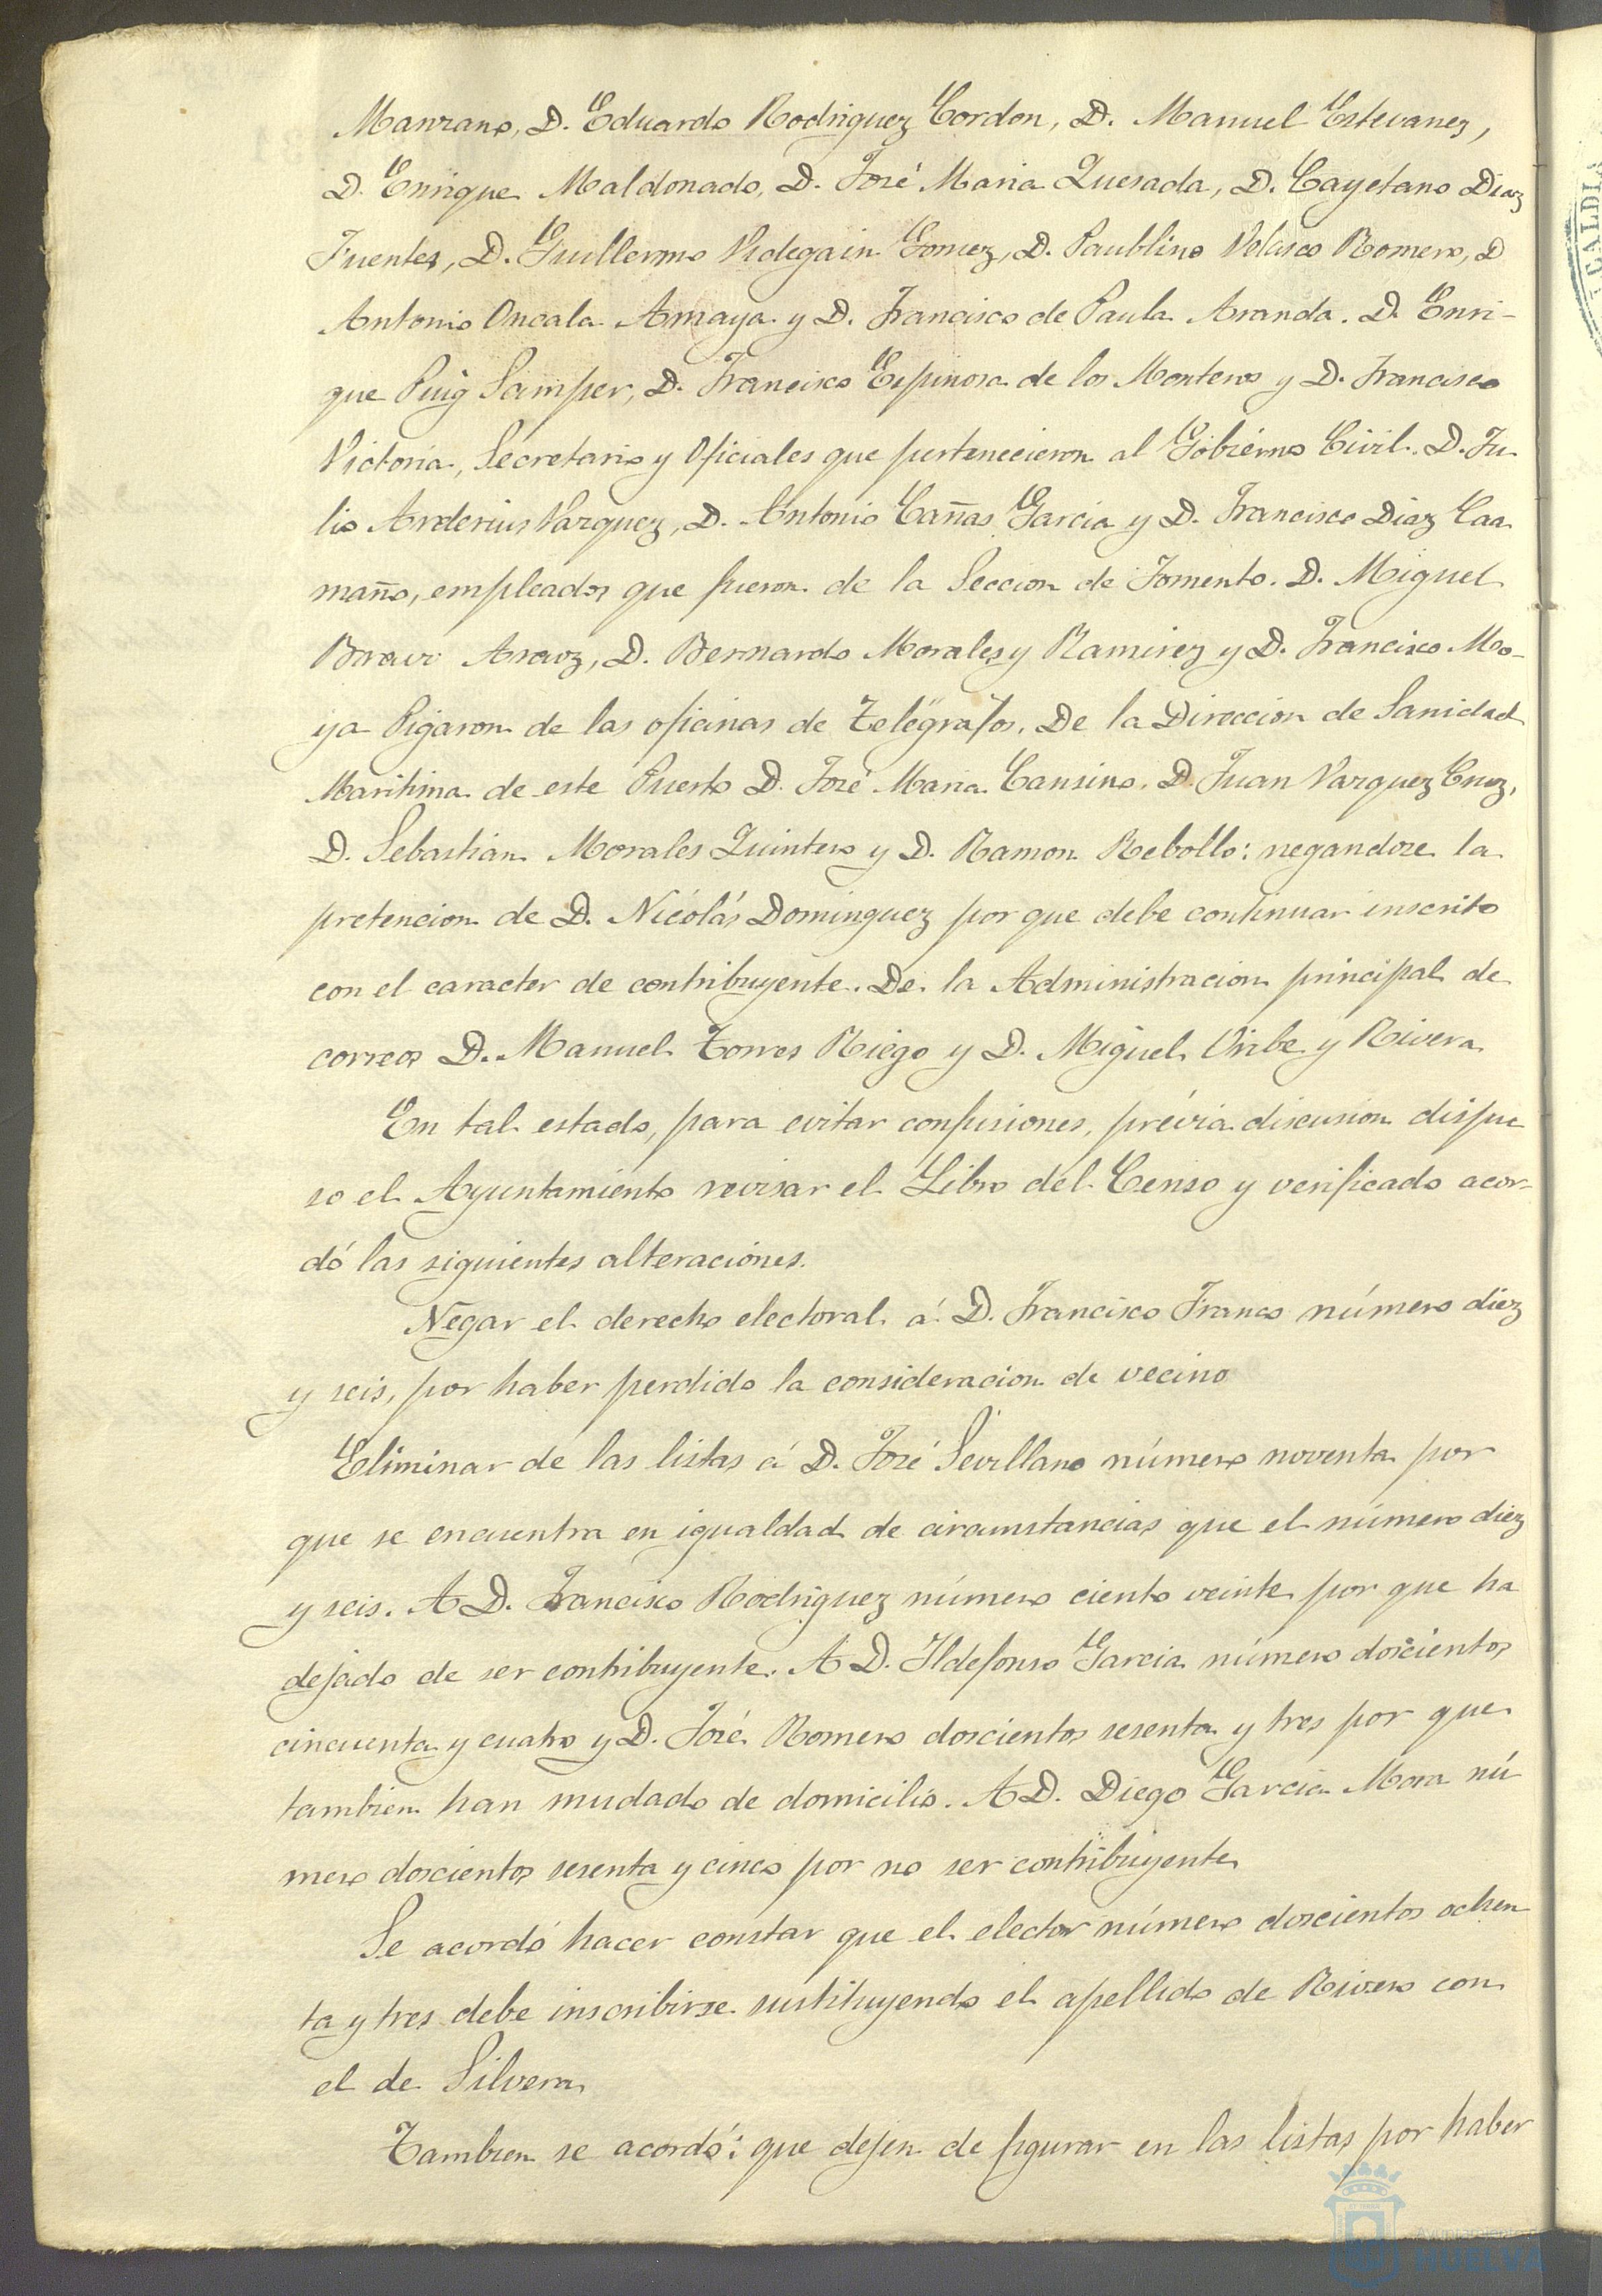 Manzano, D. Eduardo Rodriguez Cordon, D. Manuel Estevanez,
D. Enrique Maldonado, D. José Maria Quesada, D. Cayetano Diaz
Fuentes, D. Guillermo Videgain Gomez, D. Paublino Velasco Romero, D
Antonio Oncala Amaya y D. Francisco de Paula Aranda. D. Enri-
que Puig Samper, D. Francisco Espinosa de los Monteros y D. Francisco
Victoria, Secretario y Oficiales que pertenecieron al Gobierno Civil. D. Ju
lio Arderius Vazquez, D. Antonio Cañas Garcia y D. Francisco Diaz Caa
maño, empleados que fueron de la Seccion de Fomento. D. Miguel
Bravo Araoz, D. Bernardo Morales y Ramirez y D. Francisco Mo-
ya Pigaron de las oficinas de Telégrafos. De la Direccion de Sanidad
Maritima de este Puerto D. José Maria Cansino. D. Juan Vazquez Cruz,
D. Sebastian Morales Quintero y D. Ramon Rebollo: negandose la
pretencion de D. Nicolás Dominguez por que debe continuar inscrito
con el caracter de contribuyente. De la Administracion principal de
correos D. Manuel Torres Riego y D. Miguel Uribe y Rivera
En tal estado, para evitar confusiones, prévia discusion dispu
so el Ayuntamiento revisar el Libro del Censo y verificado acor-
dó las siguientes alteraciones.
Negar el derecho electoral á D. Francisco Franco número diez
y seis, por haber perdido la consideracion de vecino
Eliminar de las listas á D. José Sevillano número noventa por
que se encuentra en igualdad de circunstancias que el número diez
y seis. A D. Francisco Rodriguez número ciento veinte por que ha
dejado de ser contribuyente. A D. Ildefonso Garcia número doscientos
cincuenta y cuatro y D. José Romero doscientos sesenta y tres por que
tambien han mudado de domicilio. A D. Diego Garcia Mora nú
mero doscientos sesenta y cinco por no ser contribuyente
Se acordó hacer constar que el elector número doscientos ochen
ta y tres debe inscribirse sustituyendo el apellido de Rivero con
el de Silvera
Tambien se acordó: que dejen de figurar en las listas por haber
CALDIA
Ayuntamiento
HUELVA